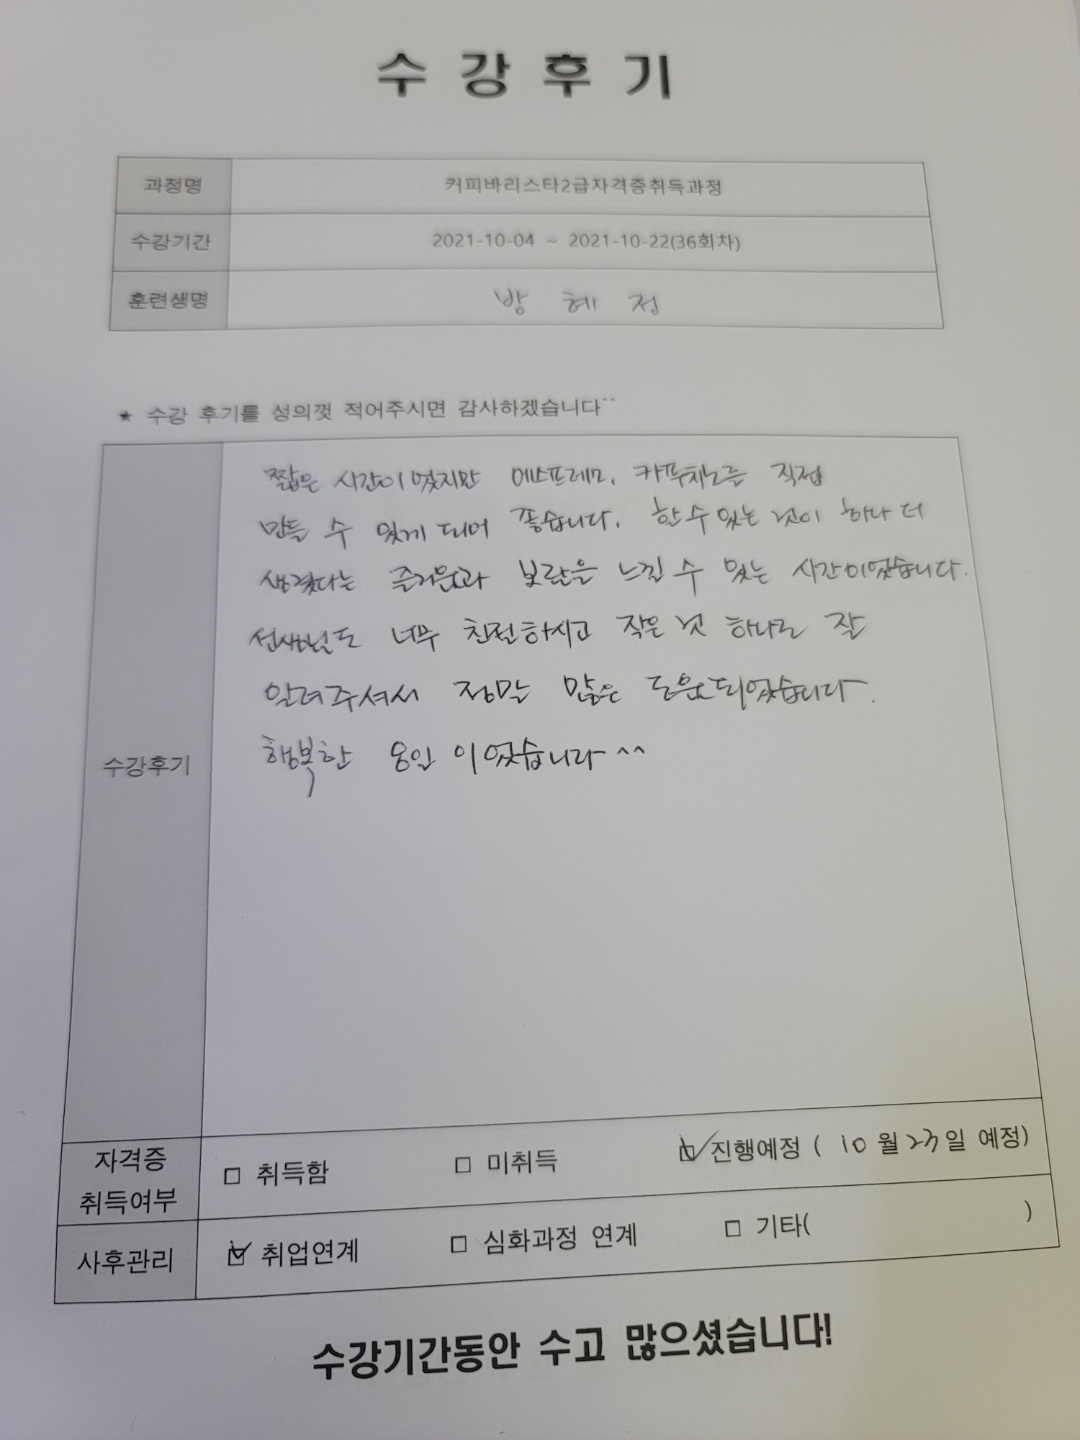 수강후기
과정명 커피바리스타2급자격증취득과정
수강기간 2021-10-04 ~ 2021-10-22(36회차)
훈련생명 방 혜 정
★ 수강 후기를 성의껏 적어주시면 감사하겠습니다^^
짧은 시간이었지만 에스프레소, 카푸치노를 직접
만들 수 있게 되어 좋습니다. 할 수 있는 것이 하나 더
생겼다는 즐거움과 보람을 느낄 수 있는 시간이었습니다.
선생님도 너무 친절하시고 작은 것 하나도 잘
알려주셔서 정말 많은 도움되었습니다.
수강후기
행복한 8일 이었습니다^^
자격증 취득여부 □ 취득함 □ 미취득 ☑ 진행예정 ( 10 월 23일 예정)
사후관리 ☑ 취업연계 □ 심화과정 연계 □ 기타( )
수강기간동안 수고 많으셨습니다!